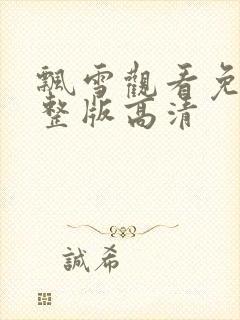 飄雪觀看免
整版高清
誠希